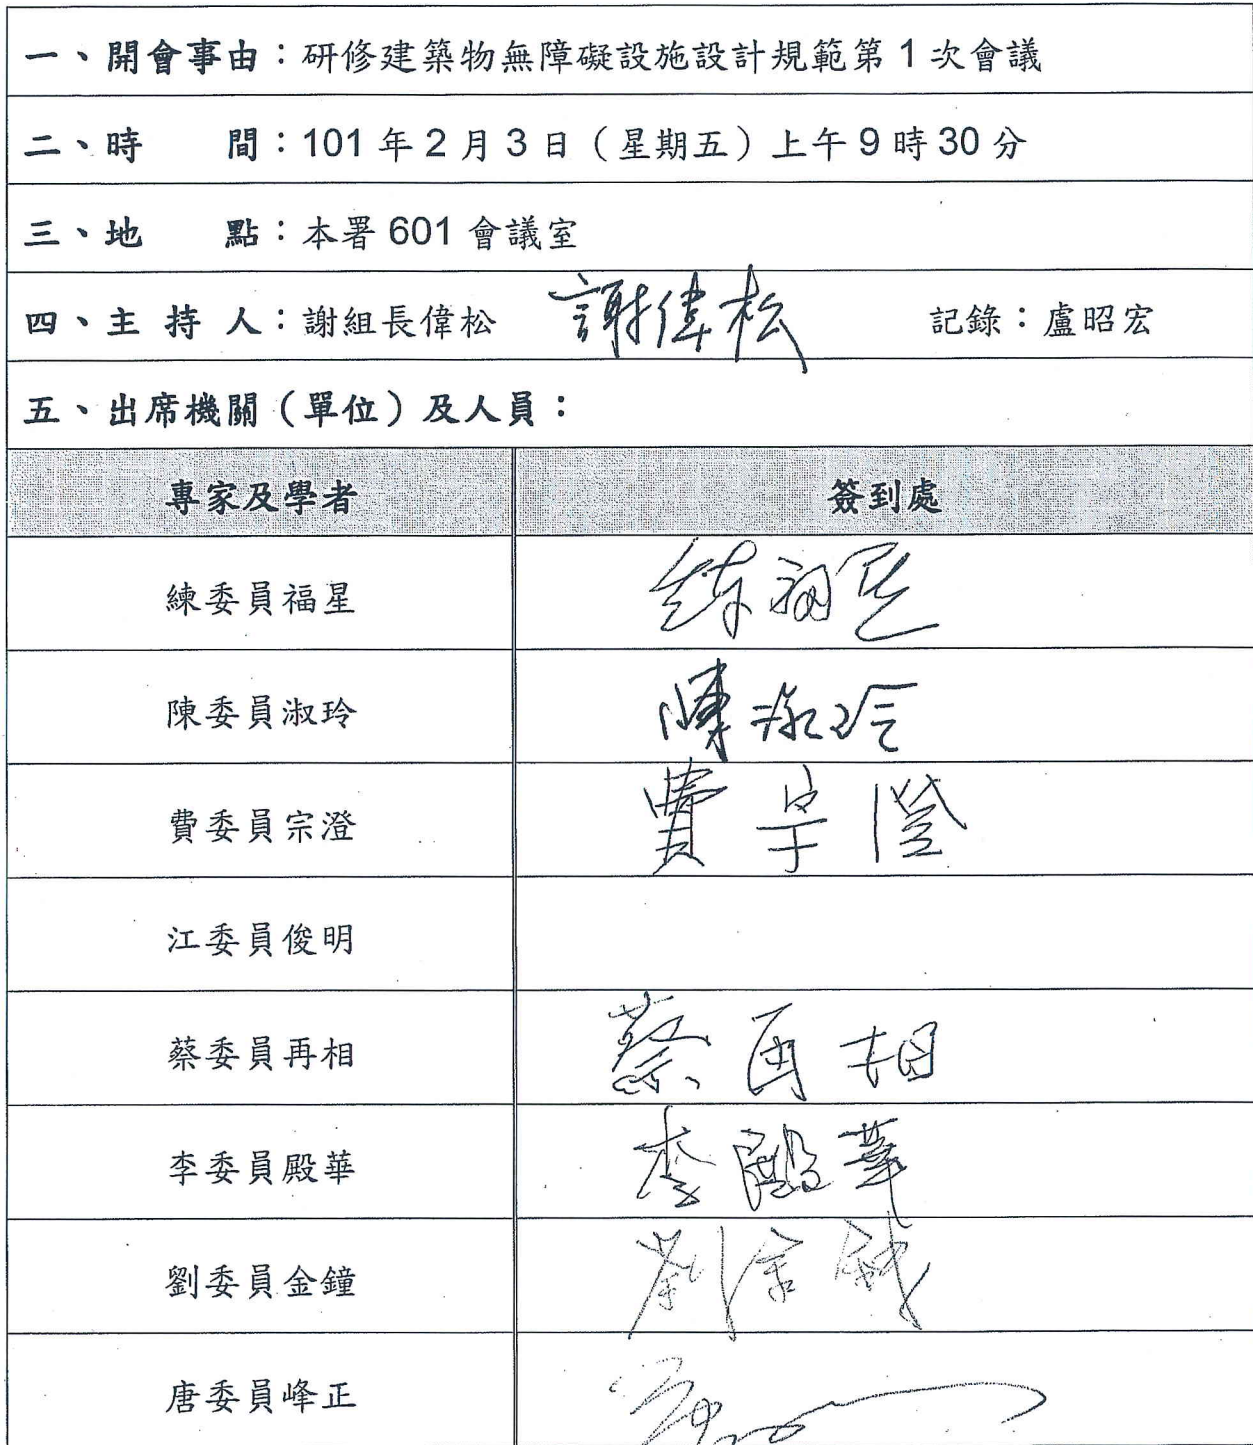 一、開會事由：研修建築物無障礙設施設計規範第1次會議
二、時　　間：101年2月3日（星期五）上午9時30分
三、地　　點：本署601會議室
四、主 持 人：謝組長偉松 謝偉松 記錄：盧昭宏
五、出席機關（單位）及人員：
專家及學者 簽到處
練委員福星 練福星
陳委員淑玲 陳淑玲
費委員宗澄 費宗澄
江委員俊明
蔡委員再相 蔡再相
李委員殿華 李殿華
劉委員金鐘 劉金鐘
唐委員峰正